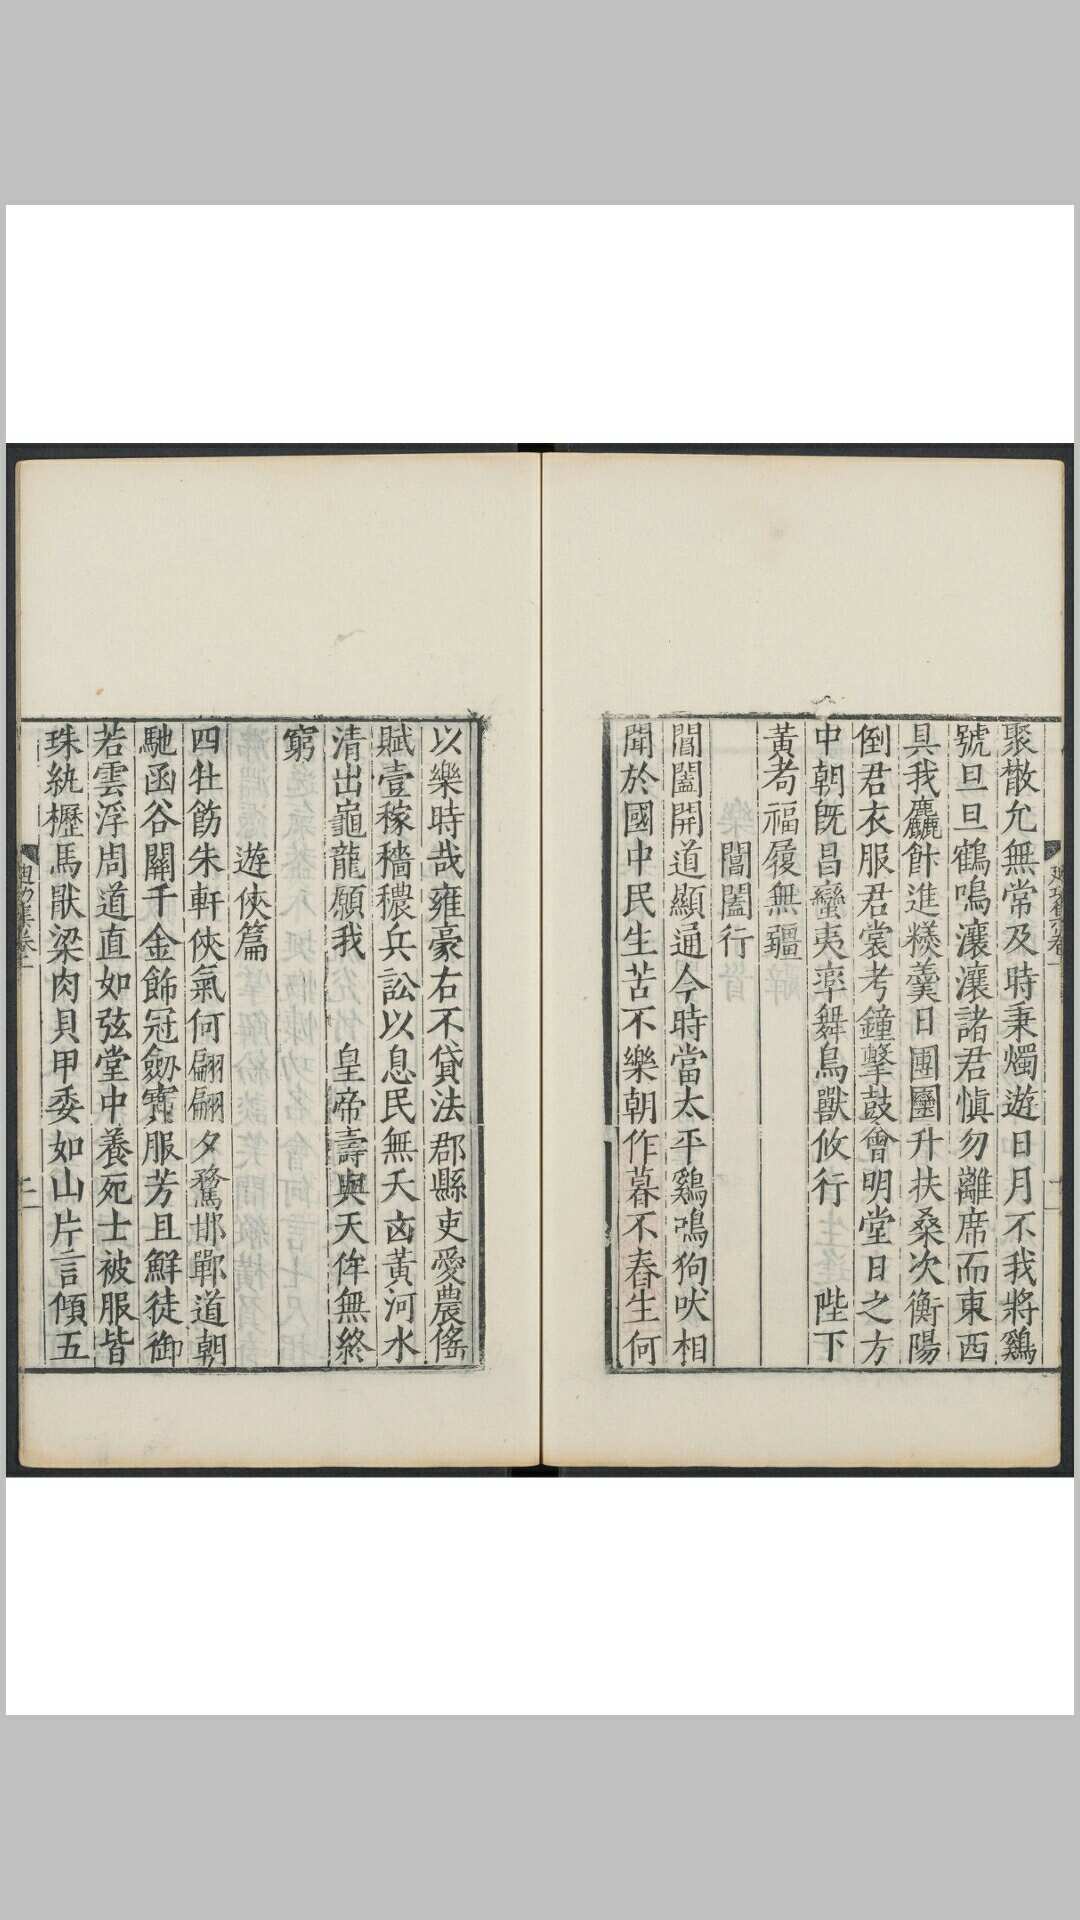 聚散允無常及時秉燭遊日月不我將鷄
號旦旦鶴鳴瀼瀼諸君愼勿離席而東西
具我麤餅進糝羹日團團升扶桑次衡陽
倒君衣服君裳考鐘擊鼓會明堂日之方
中朝旣昌蠻夷率舞鳥獸攸行　陛下
黃耇福履無疆
閶闔行
閶闔開道顯通今時當太平鷄鳴狗吠相
聞於國中民生苦不樂朝作暮不舂生何
以樂時哉雍豪右不貸法郡縣吏愛農傜
賦壹稼穡穠兵訟以息民無夭凶黃河水
清出龜龍願我　皇帝壽與天侔無終
窮
遊俠篇
四牡飭朱軒俠氣何翩翩夕騖邯鄲道朝
馳函谷關千金飾冠劒寶服芳且鮮徒御
若雲浮周道直如弦堂中養死士被服皆
珠紈櫪馬猒梁肉貝甲委如山片言傾五